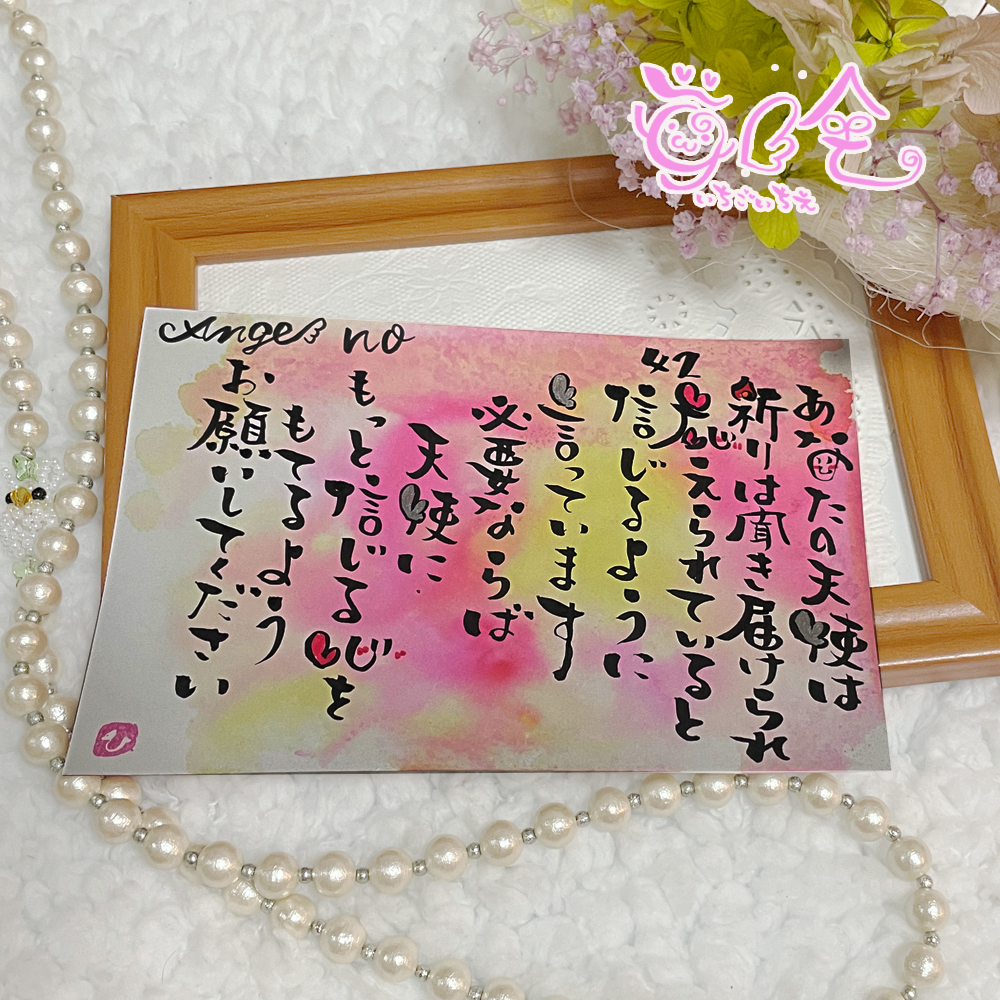 Angel no
47
あなたの天使は
祈りは聞き届けられ
応えられていると
信じるように
言っています
必要ならば
天使に
もっと信じる心を
もてるよう
お願いしてください
ひ
いちごいちえ